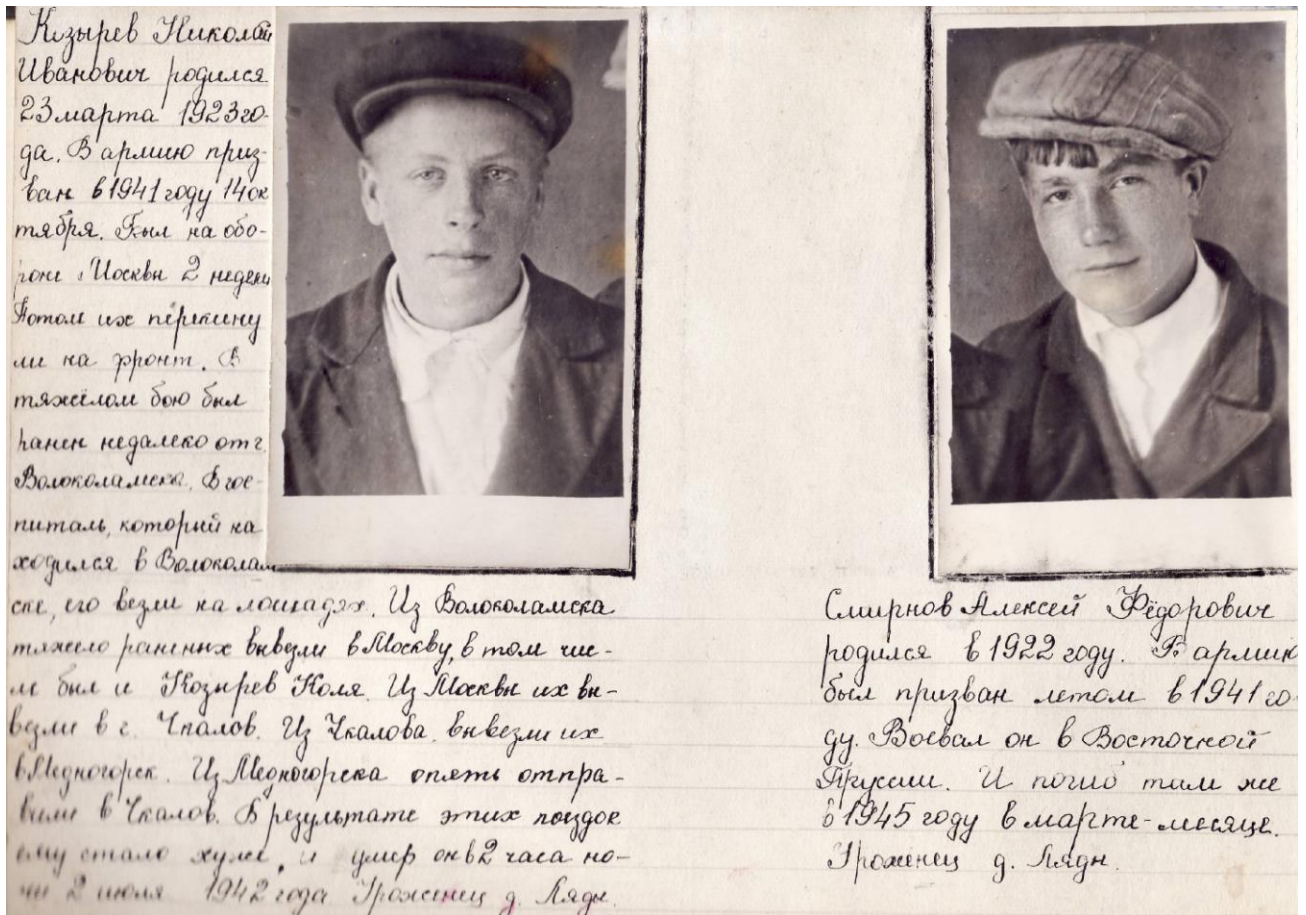 Козырев Николай
Иванович родился
23 марта 1923 го-
да. В армию приз-
ван в 1941 году 14 ок
тября. Был на обо-
роне Москвы 2 недели
Потом их перекину
ли на фронт. В
тяжёлом бою был
ранен недалеко от г.
Волоколамска. В гос-
питаль, который на
ходился в Волоколам
ске, его везли на лошадях. Из Волоколамска
тяжело раненых вывезли в Москву, в том чис-
ле был и Козырев Коля. Из Москвы их вы-
везли в г. Чкалов. Из Чкалова вывезли их
в Медногорск. Из Медногорска опять отпра-
вили в Чкалов. В результате этих поездок
ему стало хуже, и умер он в 2 часа но-
чи 2 июля 1942 года Уроженец д. Ляды.
Смирнов Алексей Фёдорович
родился в 1922 году. В армию
был призван летом в 1941 го-
ду. Воевал он в Восточной
Пруссии. И погиб там же
в 1945 году в марте-месяце.
Уроженец д. Ляды.